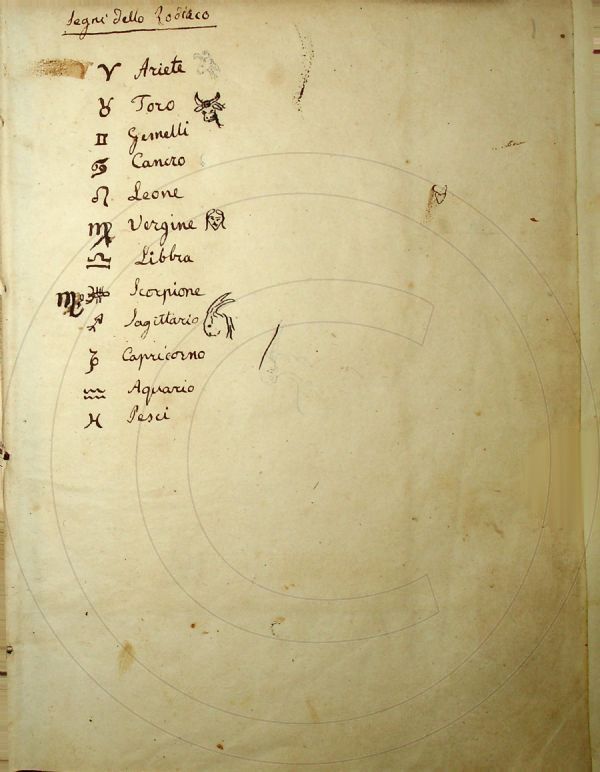 Segni dello Zodiaco
♈ Ariete
♉ Toro
♊ Gemelli
♋ Cancro
♌ Leone
♍ Vergine
♎ Libbra
♏ Scorpione
♐ Sagittario
♑ Capricorno
♒ Aquario
♓ Pesci